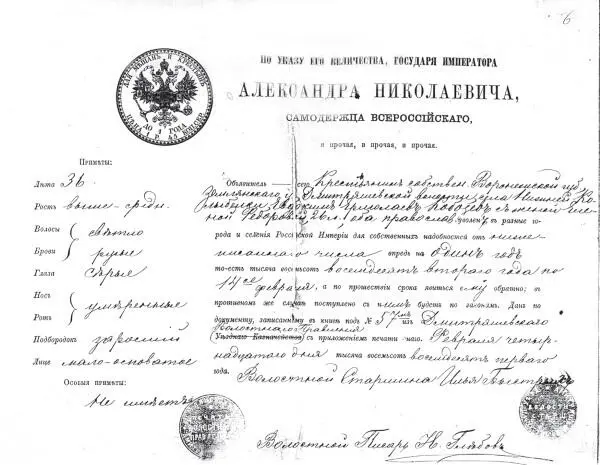 6
ДЛЯ МѢЩАНЪ И КРЕСТЬЯНЪ
ДО 1 ГОДА
ЦѢНА 1 Р. 45 КОПѢЕКЪ
ПО УКАЗУ ЕГО ВЕЛИЧЕСТВА, ГОСУДАРЯ ИМПЕРАТОРА
АЛЕКСАНДРА НИКОЛАЕВИЧА,
САМОДЕРЖЦА ВСЕРОССІЙСКАГО,
и прочая, и прочая, и прочая.
Примѣты:
Лѣта 36.
Ростъ выше-средн.
Волосы свѣтло
Брови русые
Глаза сѣрые
Носъ
Ротъ умѣренные
Подбородокъ заросшій
Лице мало-осповатое
Особыя примѣты:
Не имѣетъ
Объявитель сего Крестьянинъ собствен. Воронежской губ.
Землянскаго у. Дмитряшевской волости села Нижней Ко-
лыбелки Ермолаевъ съ женой
Федоровой 26 л. 1 года православ. уволенъ въ разные го-
рода и селенія Россійской Имперіи для собственныхъ надобностей отъ ниже-
писаннаго числа впредь на одинъ годъ
то-есть тысяча восемьсотъ восемдесятъ втораго года по
14е февраля, а по прошествіи срока явиться ему обратно; въ
противномъ же случаѣ поступлено съ нимъ будетъ по законамъ. Данъ по
документу, записанному въ книгѣ подъ № 57мъ изъ Дмитряшевскаго
Волостнаго Правленія
Уѣзднаго Казначейства съ приложеніемъ печати Февраля четыр-
надцатаго дня тысяча восемьсотъ восемдесятъ перваго
года. Волостной Старшина Илья
Волостной Писарь Н.